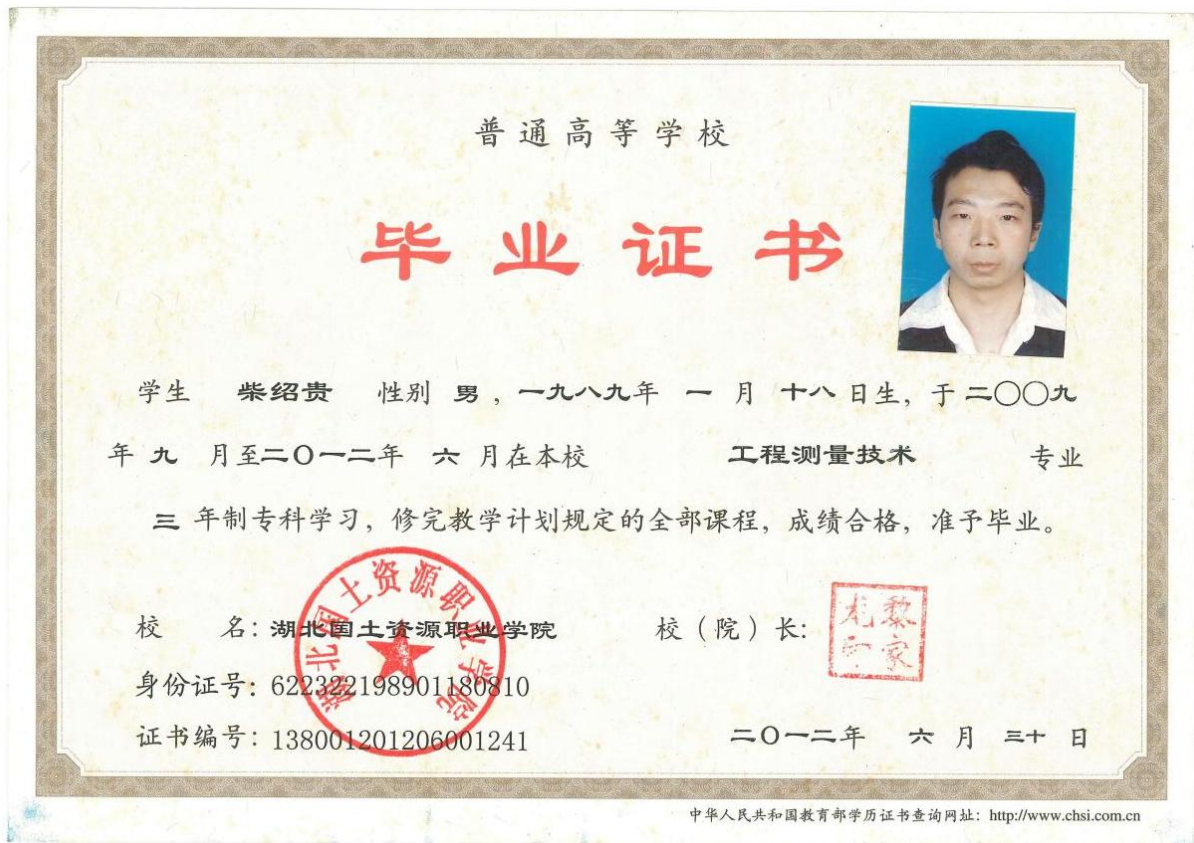 普通高等学校
毕业证书
学生 柴绍贵 性别 男，一九八九年 一 月 十八 日生，于 二〇〇九
年 九 月至二〇一二年 六 月在本校 工程测量技术 专业
三 年制专科学习，修完教学计划规定的全部课程，成绩合格，准予毕业。
湖北国土资源职业学院
校 名：湖北国土资源职业学院 校（院）长：
黎家
身份证号：622322198901180810
证书编号：138001201206001241
二〇一二年 六 月 三十 日
中华人民共和国教育部学历证书查询网址：http://www.chsi.com.cn